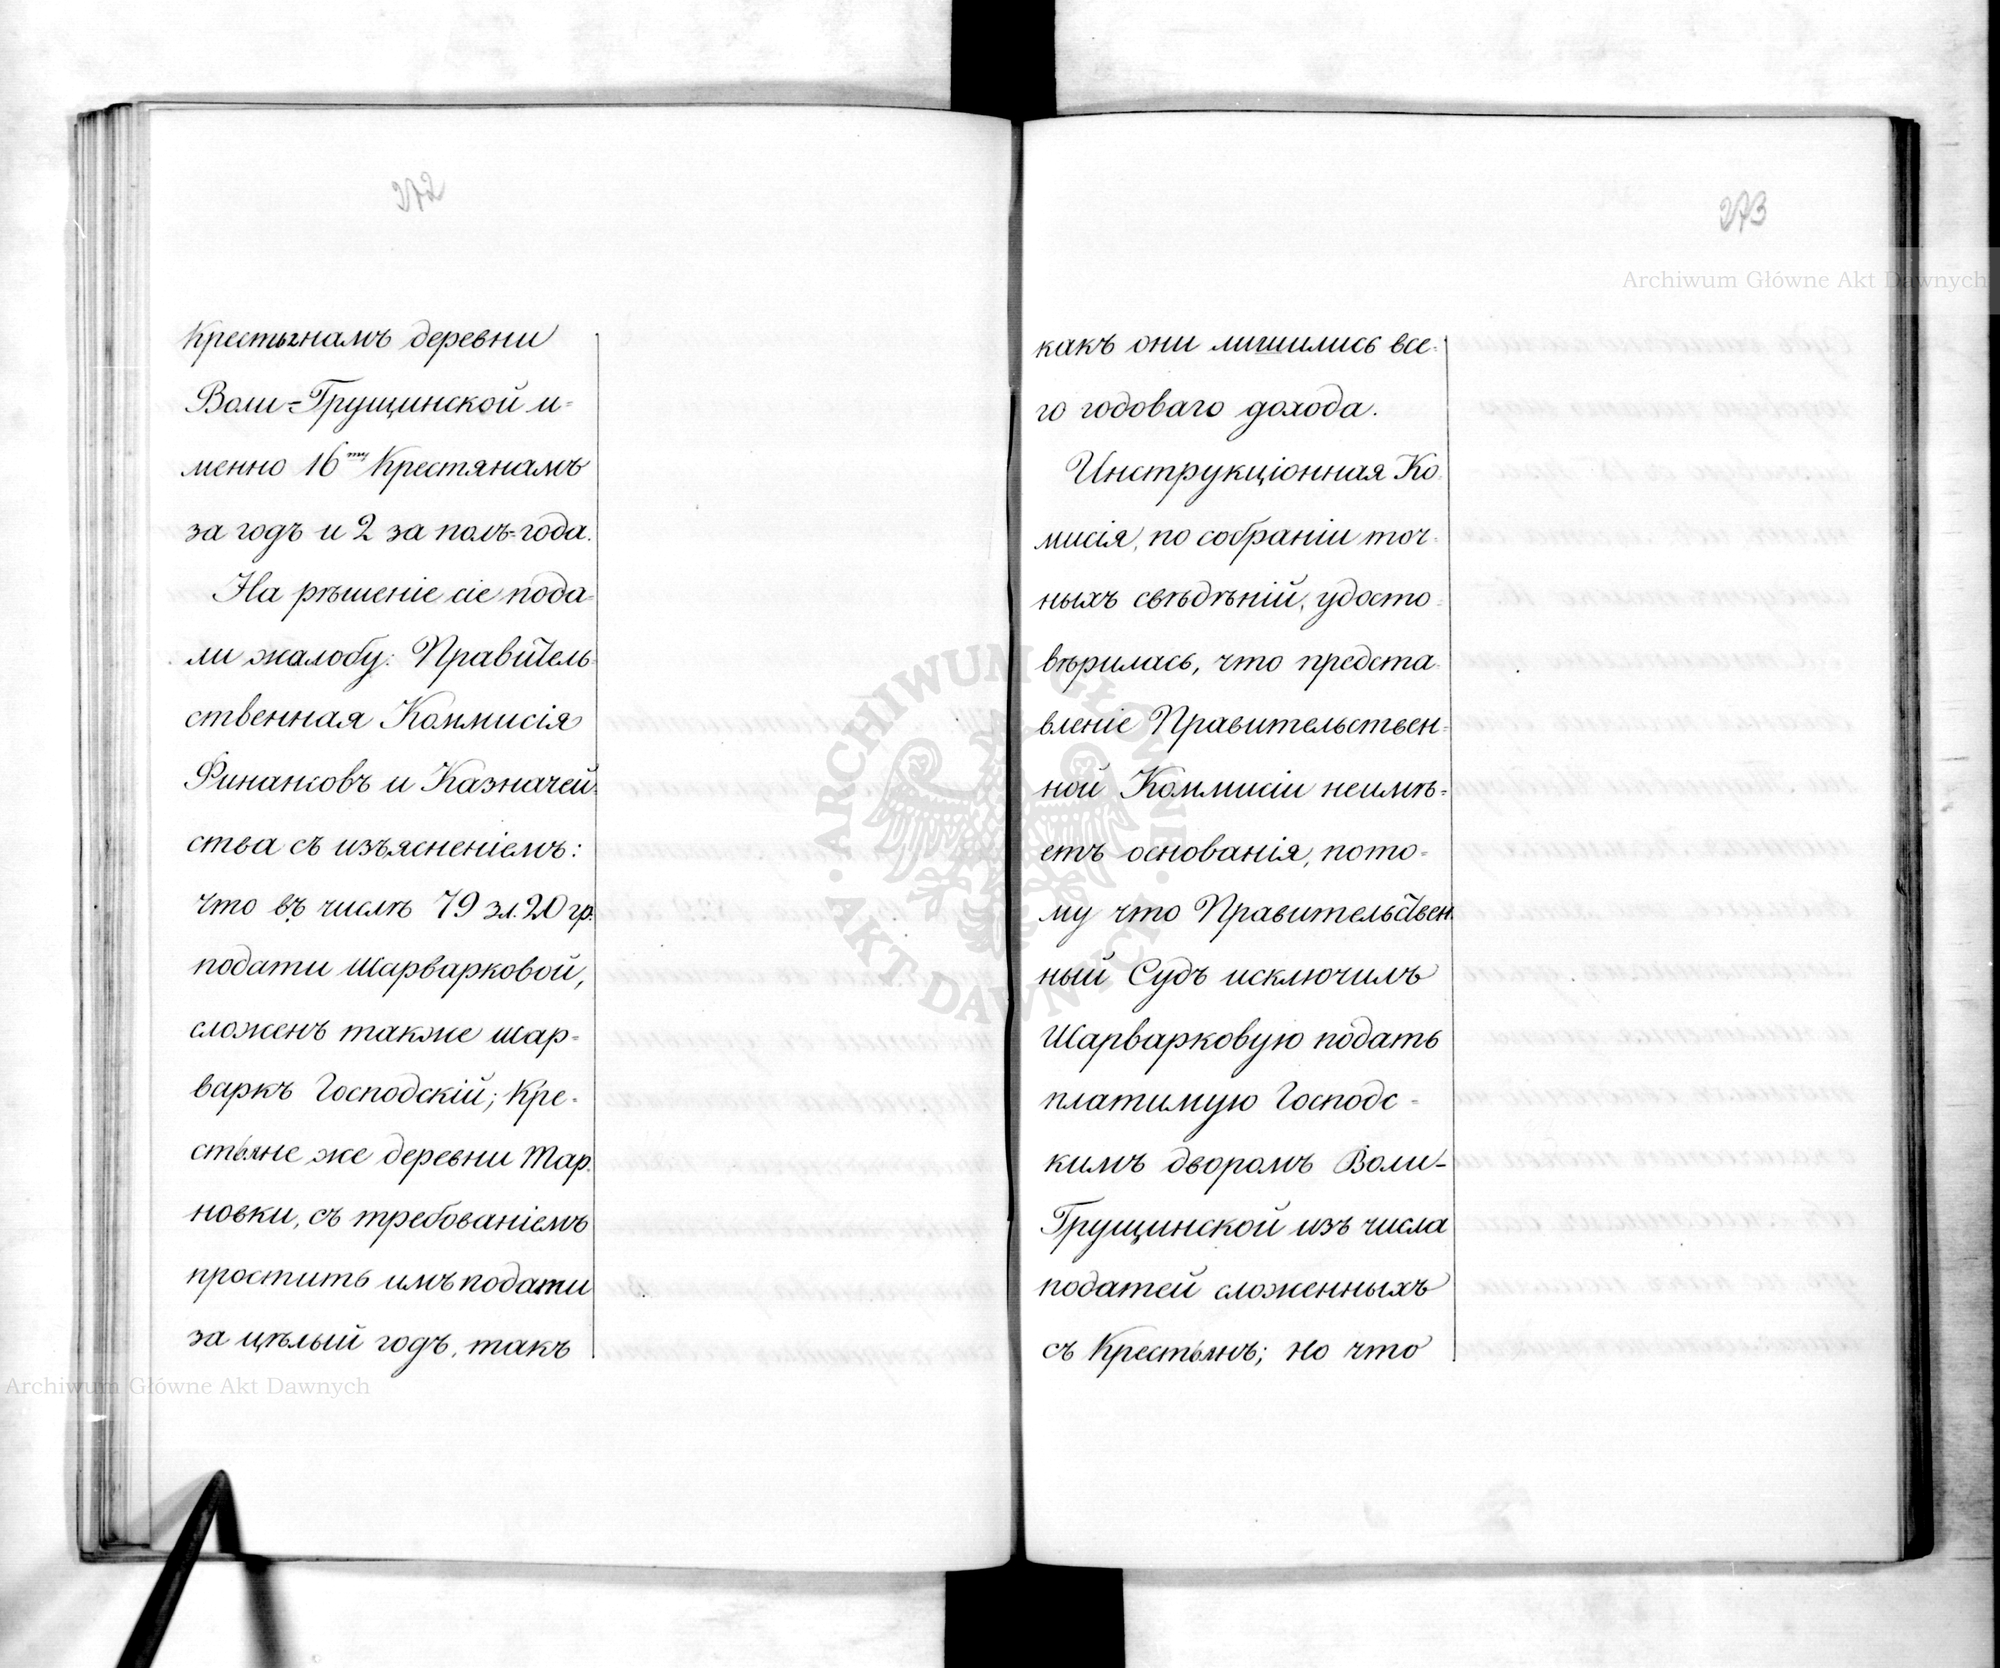 272
Крестьянамъ деревни
Воли=Трущинской и=
менно 16ти Крестянамъ
за годъ и 2 за полъ=года.
На рѣшеніе сіе пода=
ли жалобу: Правитель=
ственная Коммисія
Финансовъ и Казначей=
ства съ изъясненіемъ:
что въ числѣ 79 зл. 20 гр.
подати Шарварковой,
сложенъ также шар=
варкъ Господскій; Кре=
стьяне же деревни Тар=
новки, съ требованіемъ
простить имъ подати
за цѣлый годъ, такъ
Archiwum Główne Akt Dawnych
273
Archiwum Główne Akt Dawnych
какъ они лишились все=
го годоваго дохода.
Инструкціонная Ко
мисія, по собраніи точ=
ныхъ свѣдѣній, удосто=
вѣрилась, что предста=
вленіе Правительствен=
ной Коммисіи неимѣ=
етъ основанія, пото=
му что Правительствен
ный Судъ исключилъ
Шарварковую подать
платимую Господс=
кимъ дворомъ Воли-
Трущинской изъ числа
податей сложенныхъ
съ Крестьянъ; но что
ARCHIWUM GŁÓWNE
AKT DAWNYCH